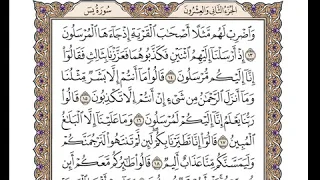 الجزء الثاني والعشرون سورة يس
وَٱضْرِبْ لَهُم مَّثَلًا أَصْحَٰبَ ٱلْقَرْيَةِ إِذْ جَآءَهَا ٱلْمُرْسَلُونَ
١٣ إِذْ أَرْسَلْنَآ إِلَيْهِمُ ٱثْنَيْنِ فَكَذَّبُوهُمَا فَعَزَّزْنَا بِثَالِثٍ فَقَالُوٓا۟
إِنَّآ إِلَيْكُم مُّرْسَلُونَ ١٤ قَالُوا۟ مَآ أَنتُمْ إِلَّا بَشَرٌ مِّثْلُنَا
وَمَآ أَنزَلَ ٱلرَّحْمَٰنُ مِن شَىْءٍ إِنْ أَنتُمْ إِلَّا تَكْذِبُونَ ١٥ قَالُوا۟
رَبُّنَا يَعْلَمُ إِنَّآ إِلَيْكُمْ لَمُرْسَلُونَ ١٦ وَمَا عَلَيْنَآ إِلَّا ٱلْبَلَٰغُ
ٱلْمُبِينُ ١٧ قَالُوٓا۟ إِنَّا تَطَيَّرْنَا بِكُمْ لَئِن لَّمْ تَنتَهُوا۟ لَنَرْجُمَنَّكُمْ
وَلَيَمَسَّنَّكُم مِّنَّا عَذَابٌ أَلِيمٌ ١٨ قَالُوا۟ طَٰٓئِرُكُم مَّعَكُمْ أَئِن